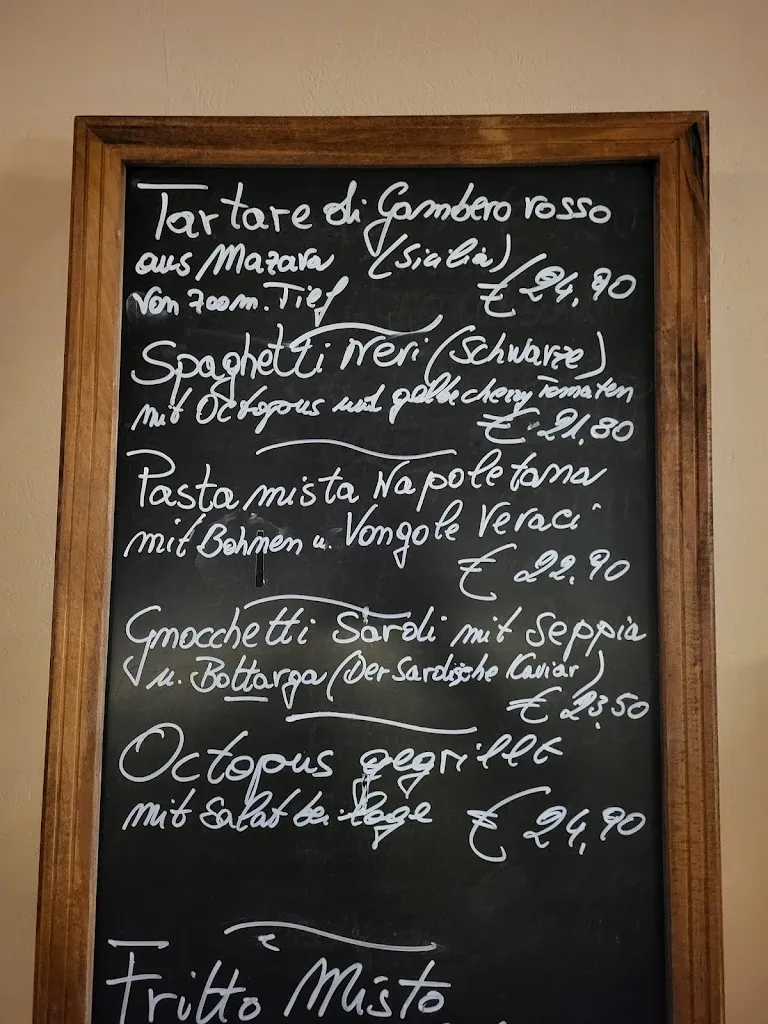 Tartare di Gambero rosso
aus Mazara (Sicilia)
von 700m. Tief € 24,90
Spaghetti Neri (Schwarze)
mit Octopus und gelbe cherry Tomaten
€ 21,80
Pasta mista Napoletana
mit Bohnen u. Vongole Veraci
€ 22,90
Gnocchetti Sardi mit Seppia
u. Bottarga (Der Sardische Kaviar)
€ 23,50
Octopus gegrillt
mit Salat beilage € 24,90
Fritto Misto